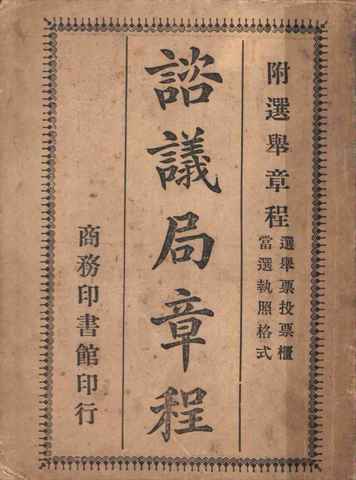 附選舉章程
選舉票投票櫃
當選執照格式
諮議局章程
商務印書館印行